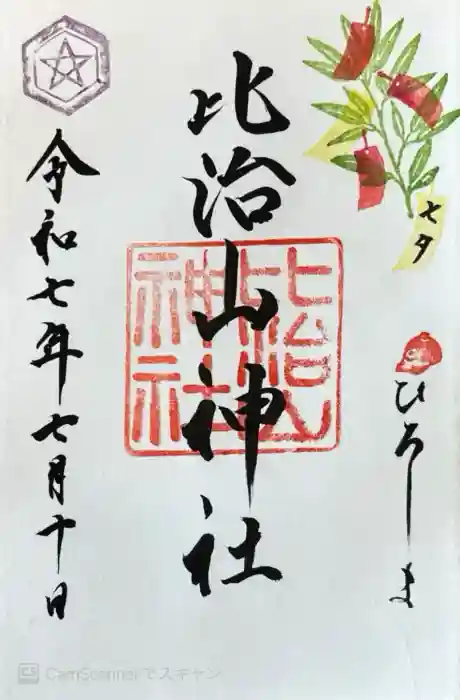 七夕
ひろしま
比治山神社
比治山神社
令和七年七月十日
CS CamScannerでスキャン